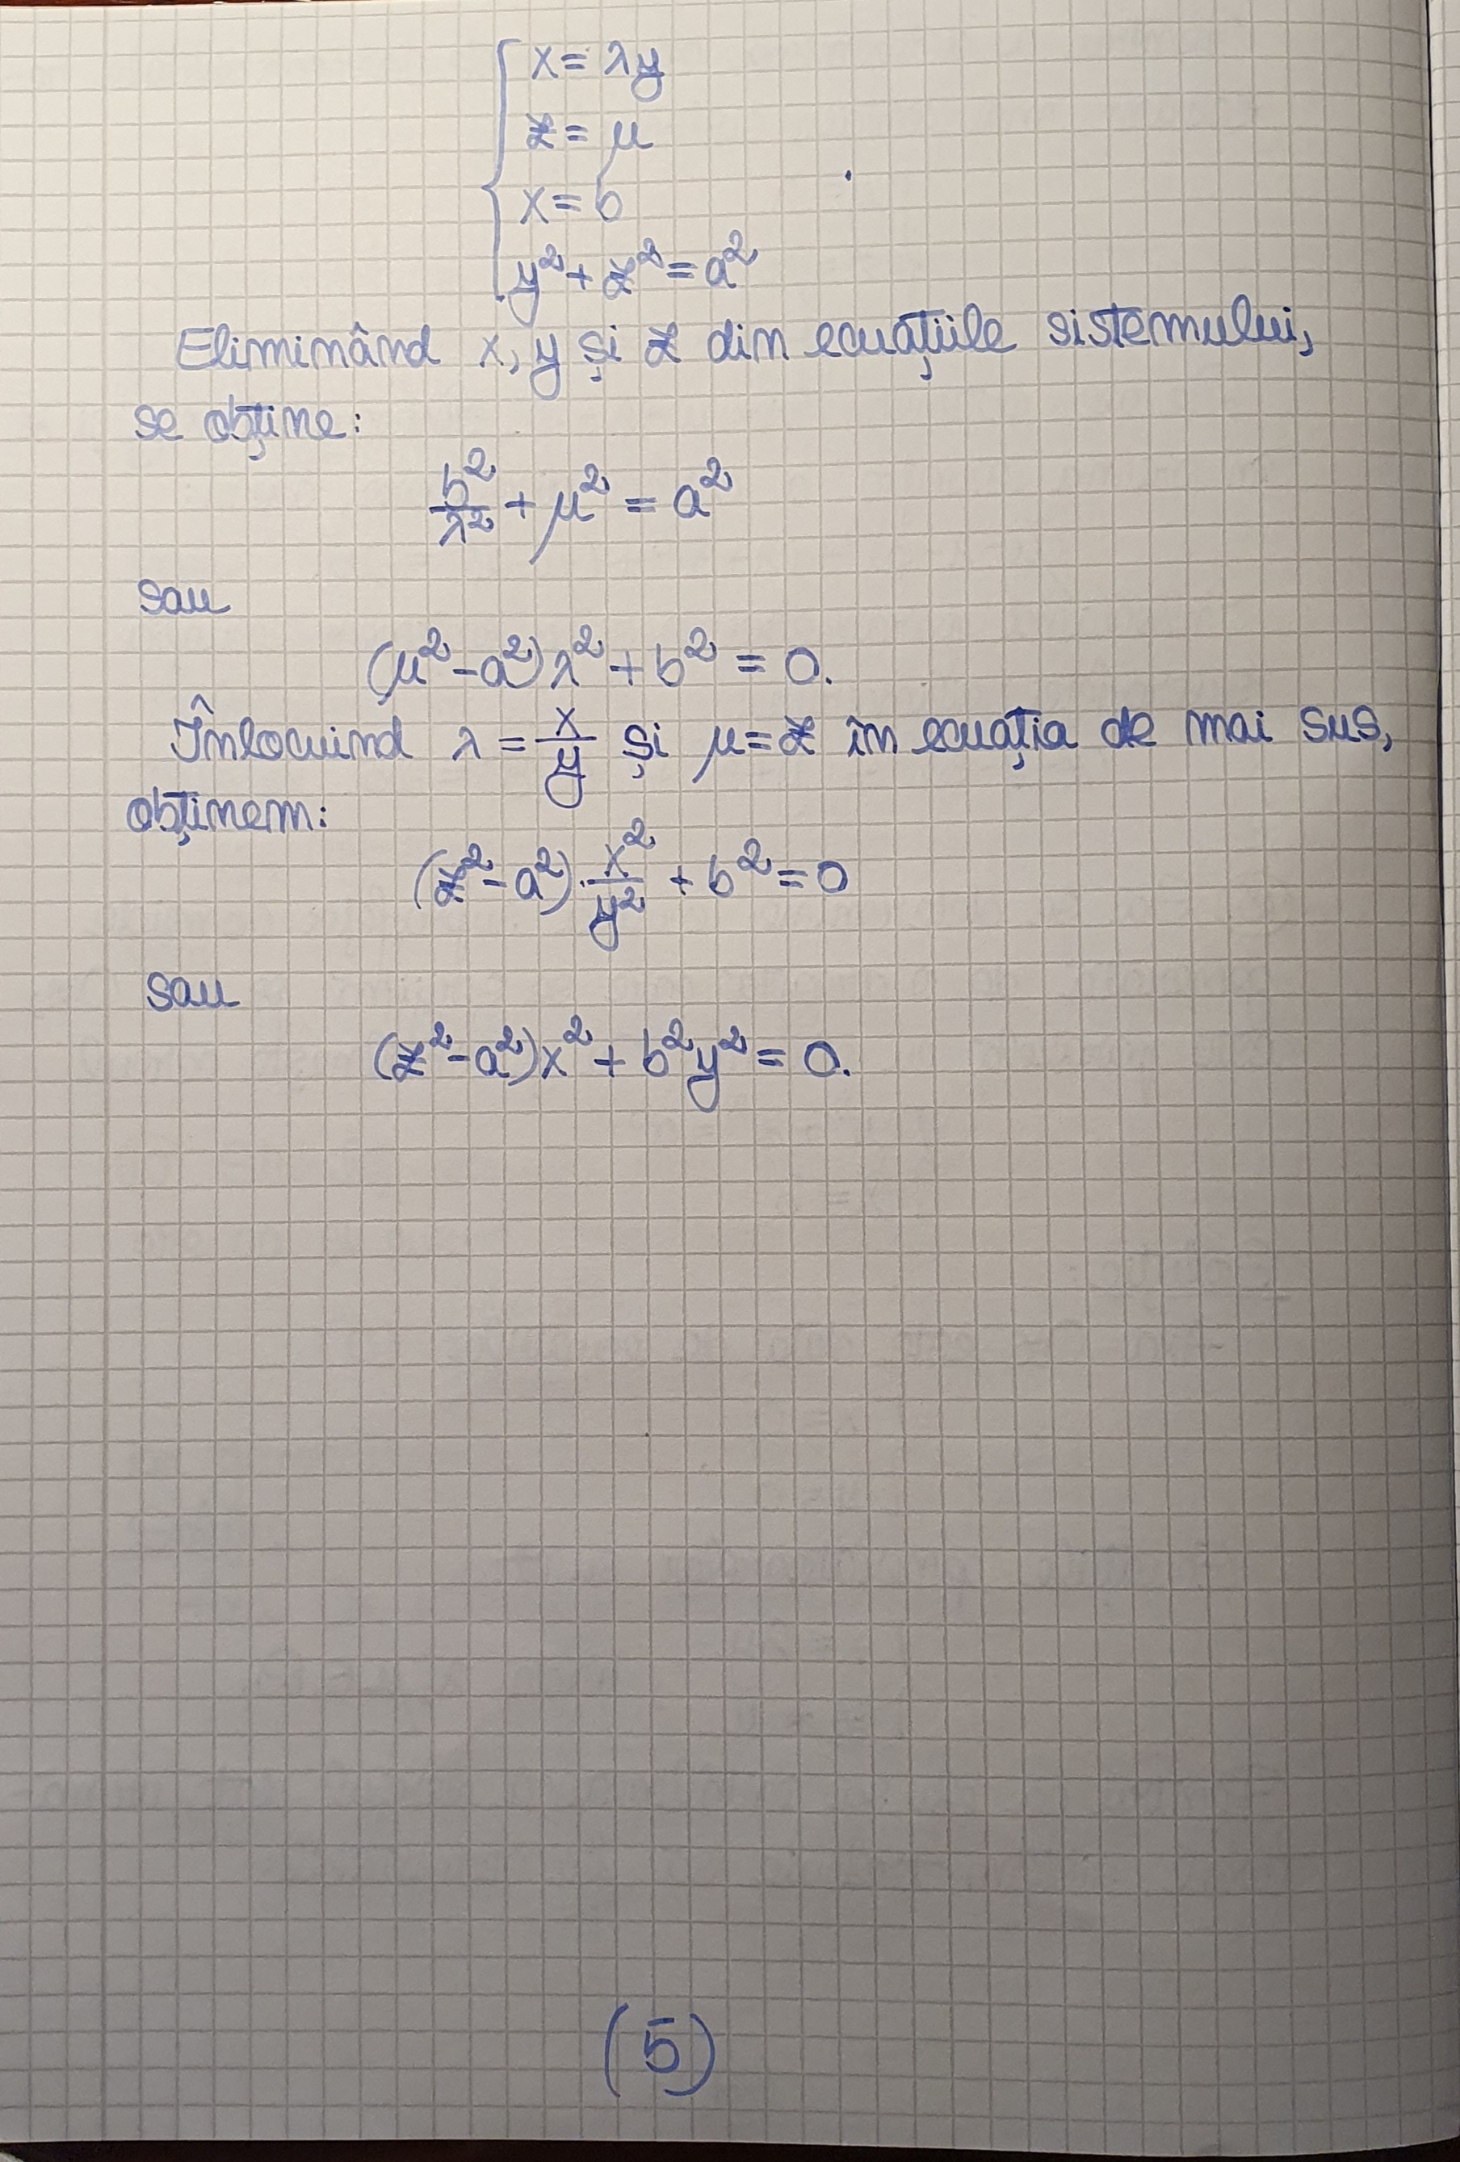 x = λy
z = μ
x = b
y² + z² = a²
Eliminând x, y și z din ecuațiile sistemului,
se obține:
b²/λ² + μ² = a²
sau
(μ² - a²)λ² + b² = 0.
Înlocuind λ = x/y și μ = z în ecuația de mai sus,
obținem:
(z² - a²) · x²/y² + b² = 0
sau
(z² - a²)x² + b²y² = 0.
(5)